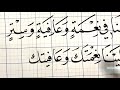 فِي نِعْمَةٍ وَعَافِيَةٍ وَسِتْرٍ
نِعْمَتَكَ وَعَافِيَتَكَ